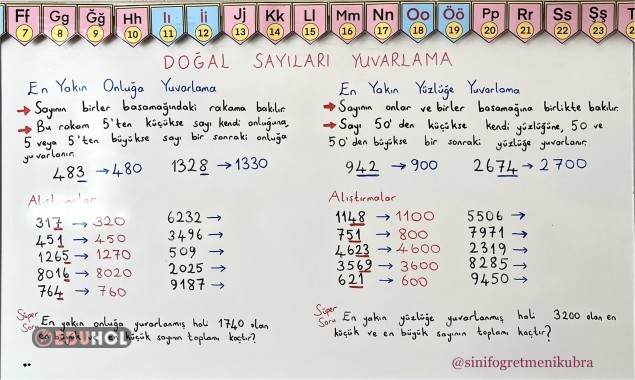 Ff Gg Ğğ Hh Iı İi Jj Kk Ll Mm Nn Oo Öö Pp Rr Ss Şş T
7 8 9 10 11 12 13 14 15 16 17 18 19 20 21 22 23
DOĞAL SAYILARI YUVARLAMA
En Yakın Onluğa Yuvarlama
→ Sayının birler basamağındaki rakama bakılır.
→ Bu rakam 5'ten küçükse sayı kendi onluğuna,
5 veya 5'ten büyükse sayı bir sonraki onluğa
yuvarlanır.
483 → 480 1328 → 1330
Alıştırmalar
317 → 320 6232 →
451 → 450 3496 →
1265 → 1270 509 →
8016 → 8020 2025 →
764 → 760 9187 →
Süper
Soru
En yakın onluğa yuvarlanmış hali 1740 olan
en büyük ve en küçük sayının toplamı kaçtır?
EDUHOL
En Yakın Yüzlüğe Yuvarlama
→ Sayının onlar ve birler basamağına birlikte bakılır.
→ Sayı 50'den küçükse kendi yüzlüğüne, 50 ve
50'den büyükse bir sonraki yüzlüğe yuvarlanır.
942 → 900 2674 → 2700
Alıştırmalar
1148 → 1100 5506 →
751 → 800 7971 →
4623 → 4600 2319 →
3569 → 3600 8285 →
621 → 600 9450 →
Süper
Soru
En yakın yüzlüğe yuvarlanmış hali 3200 olan en
küçük ve en büyük sayının toplamı kaçtır?
@sinifogretmenikubra